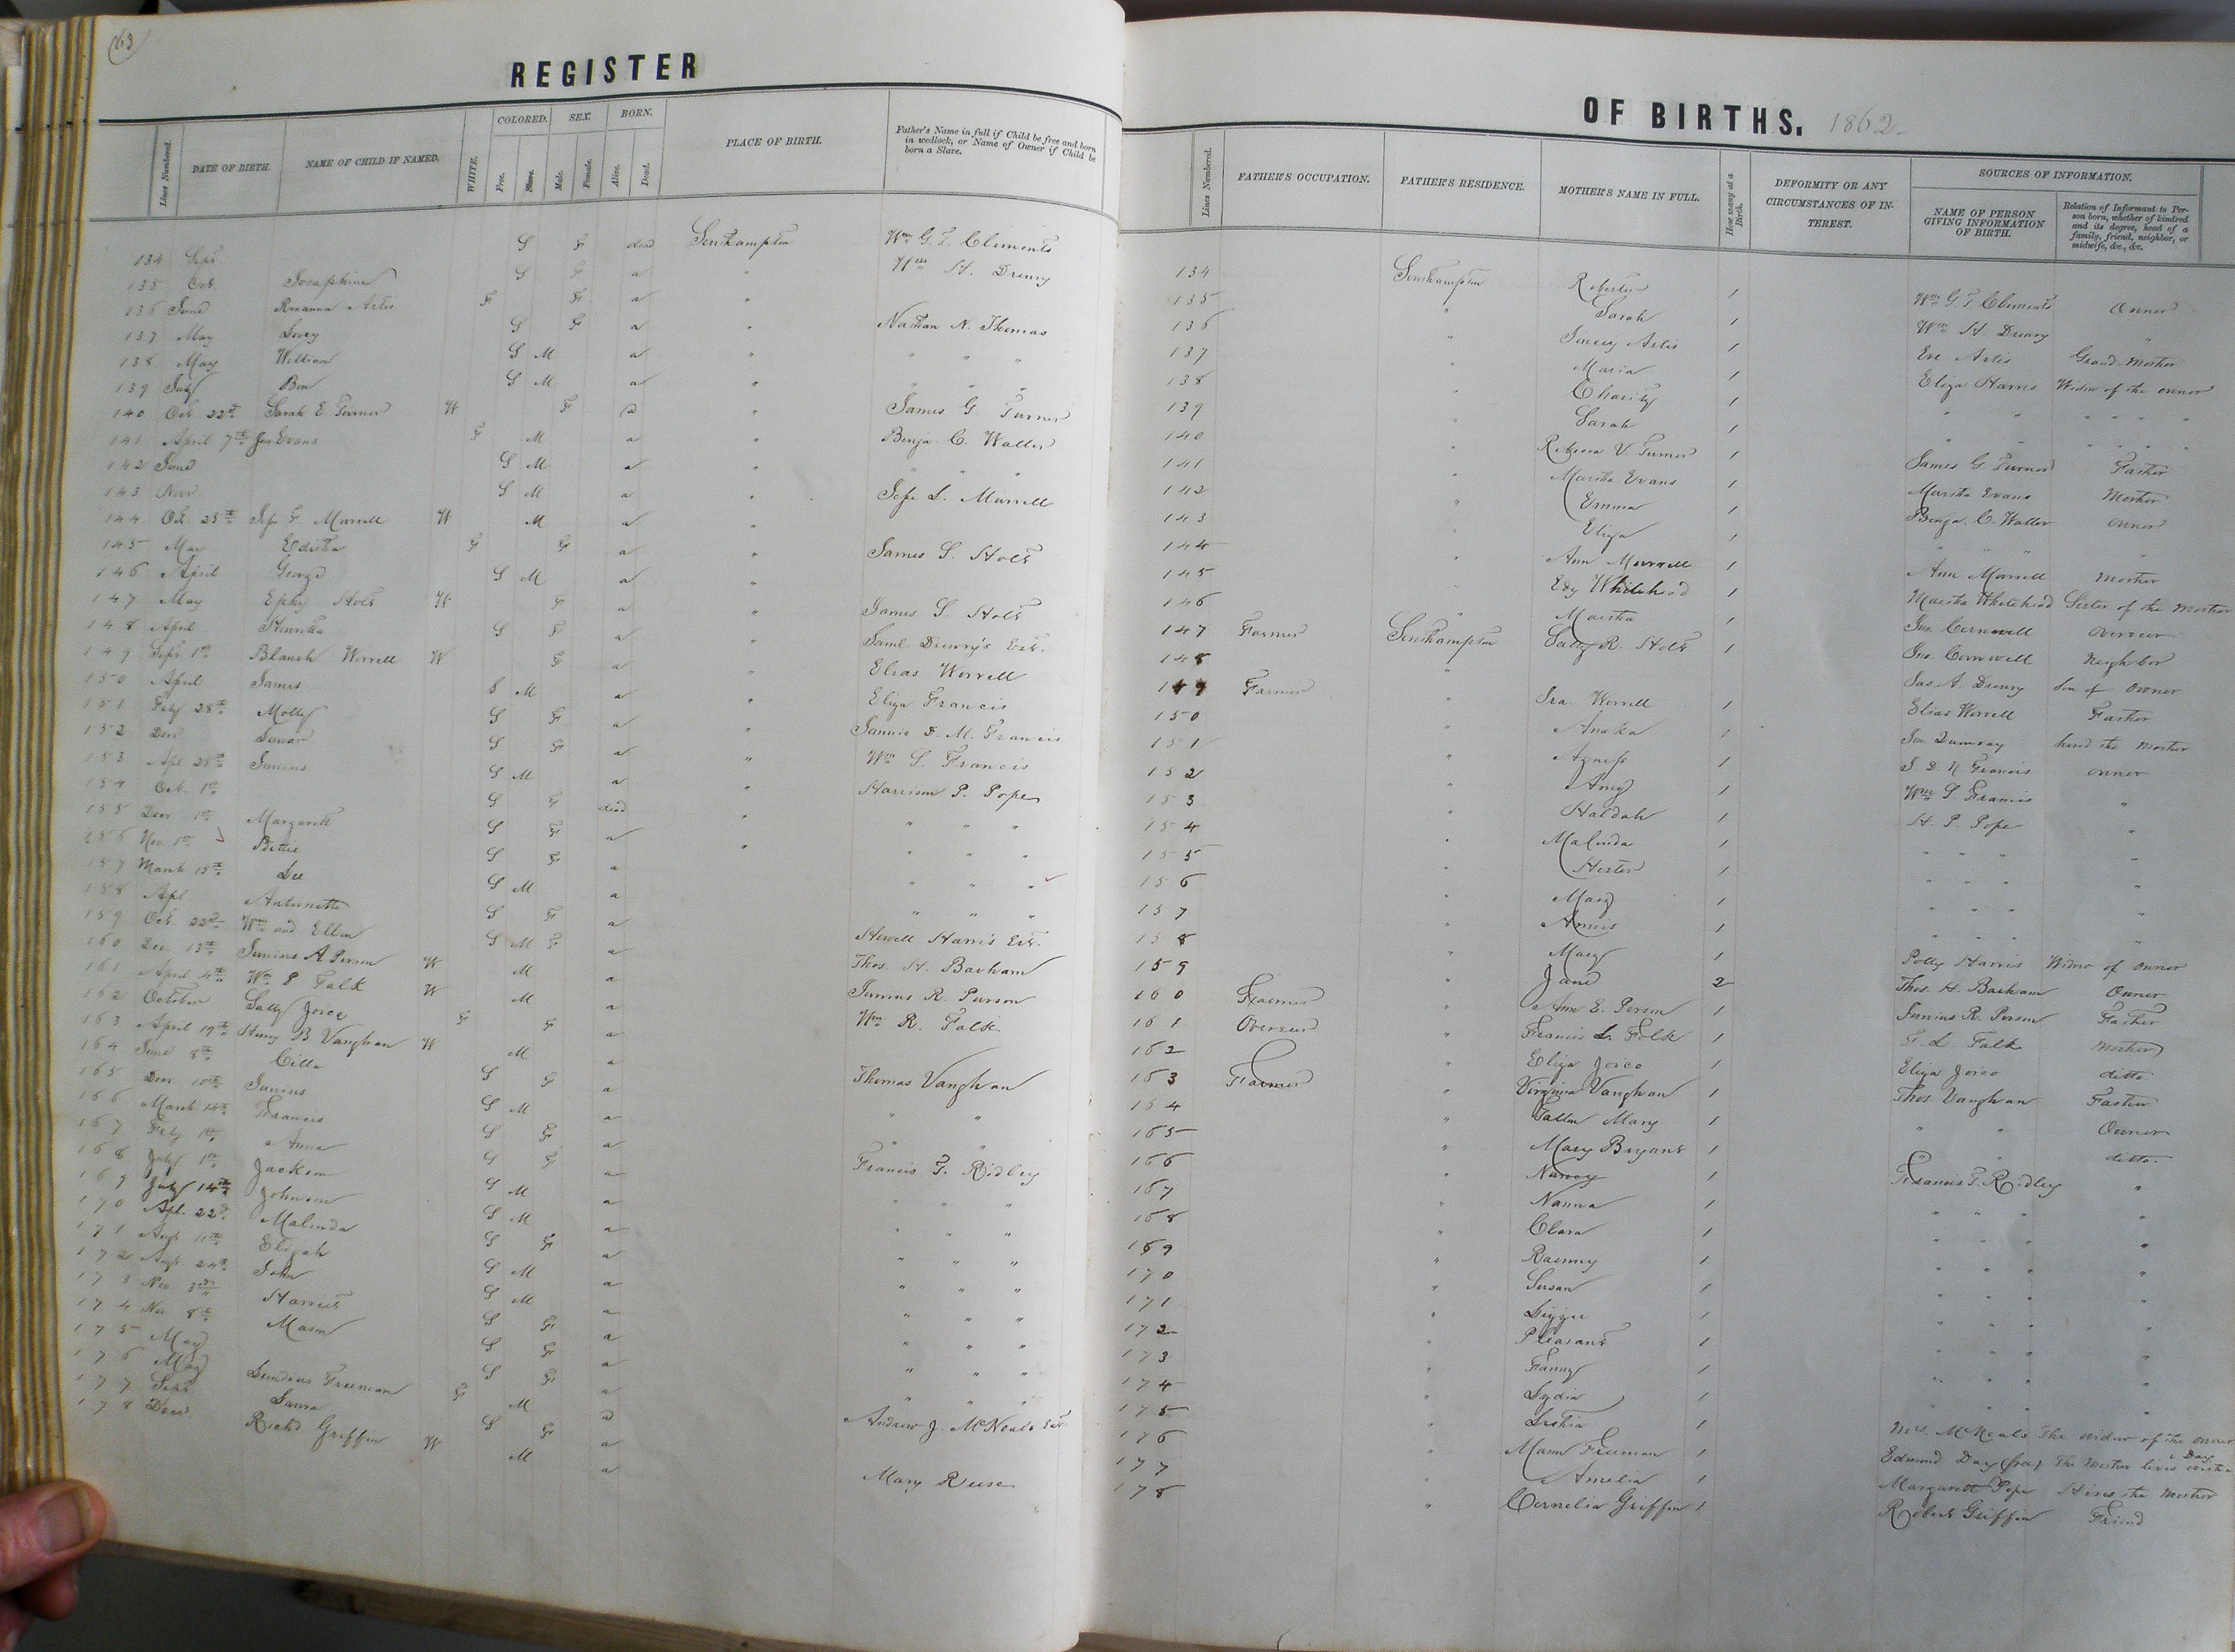 63
REGISTER
Lines Numbered. DATE OF BIRTH. NAME OF CHILD IF NAMED. WHITE. COLORED. Free. Slave. SEX. Male. Female. BORN. Alive. Dead. PLACE OF BIRTH. Father's Name in full if Child be free and born in wedlock, or Name of Owner if Child be born a Slave.
134 Sept S F dead Southampton Wm G. T. Clements
135 Oct Josaphine S F a " Wm H. Drewry
136 June Artis F F a "
137 May Lucy S F a " Nathan N. Thomas
138 May William S M a " " " "
139 July Ben S M a " " " "
140 Oct 22d Sarah E Turner W F a " James G. Turner
141 April 7th Evans F M a " Benja. C. Waller
142 June S M a " " " "
143 Novr S M a "
144 Oct. 25th Jefr F. Murrell W M a " Jefr L. Murrell
145 May Editha F F a "
146 April George S M a " James S. Holt
147 May Holt W F a " James S. Holt
148 April Henretta S F a " Saml Drewry's Est.
149 Sept 1st Blanch Worrell W F a " Elias Worrell
150 April James S M a " Eliza Francis
151 Feby 28th Molly S F a " M. Francis
152 Decr S F a " Wm S. Francis
153 Apl 28th Junius S M a " Harrison P. Pope
154 Oct. 1st S F dead " " " "
155 Decr 1st Margarett S F a " " " "
156 Nov 1st S F a " " "
157 March 15th Lee S M a " " "
158 Apl Antunette S F a Howell Harris Est.
159 Oct. 22d Wm and Ellen S M F a Thos. H. Barham
160 Dec 13th Junius A Person W M a Junius R. Person
161 April 4th Wm P Falk W M a Wm R. Falk
162 October Sally Joice F F a
163 April 19th Henry B. Vaughan W M a Thomas Vaughan
164 June 8th Cilla S F a " "
165 Decr 10th Junius S M a " "
166 March 14th Francis S F a Francis T. Ridley
167 Feby 1st Anna S F a " " "
168 July 1st Jackson S M a " " "
169 July 14th Johnson S M a " " "
170 Apl. 22d Malinda S F a " " "
171 Augt 11th Elijah S M a " " "
172 Augt 24th John S M a " " "
173 Nov 3rd Harriet S F a " " "
174 Nov 8th S F a " " "
175 May S F a Andrew J. McNeals Est
176 May Freeman F M
177 Sept Laura S F a
178 Decr Richd Griffin W M a Mary Reese
OF BIRTHS. 1862
Lines Numbered. FATHER'S OCCUPATION. FATHER'S RESIDENCE. MOTHER'S NAME IN FULL. How many at a Birth. DEFORMITY OR ANY CIRCUMSTANCES OF INTEREST. SOURCES OF INFORMATION. NAME OF PERSON GIVING INFORMATION OF BIRTH. Relation of Informant to Person born, whether of kindred and its degree, head of a family, friend, neighbor, or midwife, &c., &c.
134 Southampton 1 Wm G T Clements Owner
135 " Sarah 1 Wm H Drewry "
136 " Artis 1 Artis Grand Mother
137 " Maria 1 Eliza Harris Widow of the owner
138 " Charity 1 " " " " " "
139 " Sarah 1 " " " " " "
140 " Rebecca V. Turner 1 James G. Turner Father
141 " Martha Evans 1 Martha Evans Mother
142 " Emma 1 Benja. C. Waller owner
143 " Eliza 1 " " " "
144 " Ann Murrell 1 Ann Murrell Mother
145 " Edy Whitehead 1 Martha Whitehead Sister of the Mother
146 " Martha 1 Jno. Cornwell Overseer
147 Farmer Southampton Sally R. Holt 1 Jno. Cornwell Neighbor
148 " Jas A. Drewry Son of Owner
149 Farmer " Worrell 1 Elias Worrell Father
150 " Anaka 1 Jno. hired the Mother
151 " Agness 1 Francis owner
152 " Amy 1 Wm S. Francis "
153 " Haldah 1 H. P. Pope "
154 " Malinda 1 " " " "
155 " Hester 1 " " " "
156 " Mary 1 " " " "
157 " 1 " " " "
158 " Mary 1 Polly Harris Widow of owner
159 " Jane 2 Thos. H. Barham Owner
160 Farmer " Ann E. Person 1 Junius R. Person Father
161 Overseer " Francis L. Falk 1 F. L Falk Mother
162 " Eliza Joice 1 Eliza Joice ditto
163 Farmer " Virginia Vaughan 1 Thos. Vaughan Father
164 " Mary 1 " " Owner
165 " Mary Bryant 1 " " ditto.
166 " Nancy 1 Francis T. Ridley "
167 " Nanna 1 " " " "
168 " Clara 1 " " " "
169 " 1 " " " "
170 " Susan 1 " " " "
171 " 1 " " " "
172 " Pleasant 1 " " " "
173 " Fanny 1 " " " "
174 " Lydia 1 " " " "
175 " 1 Mrs. McNeals The widow of the owner
176 " Freeman 1 Edmund Day The Mother lives with Day
177 " Amelia 1 Margarett Pope Hires the Mother
178 " Cornelia Griffin 1 Robert Griffin Friend